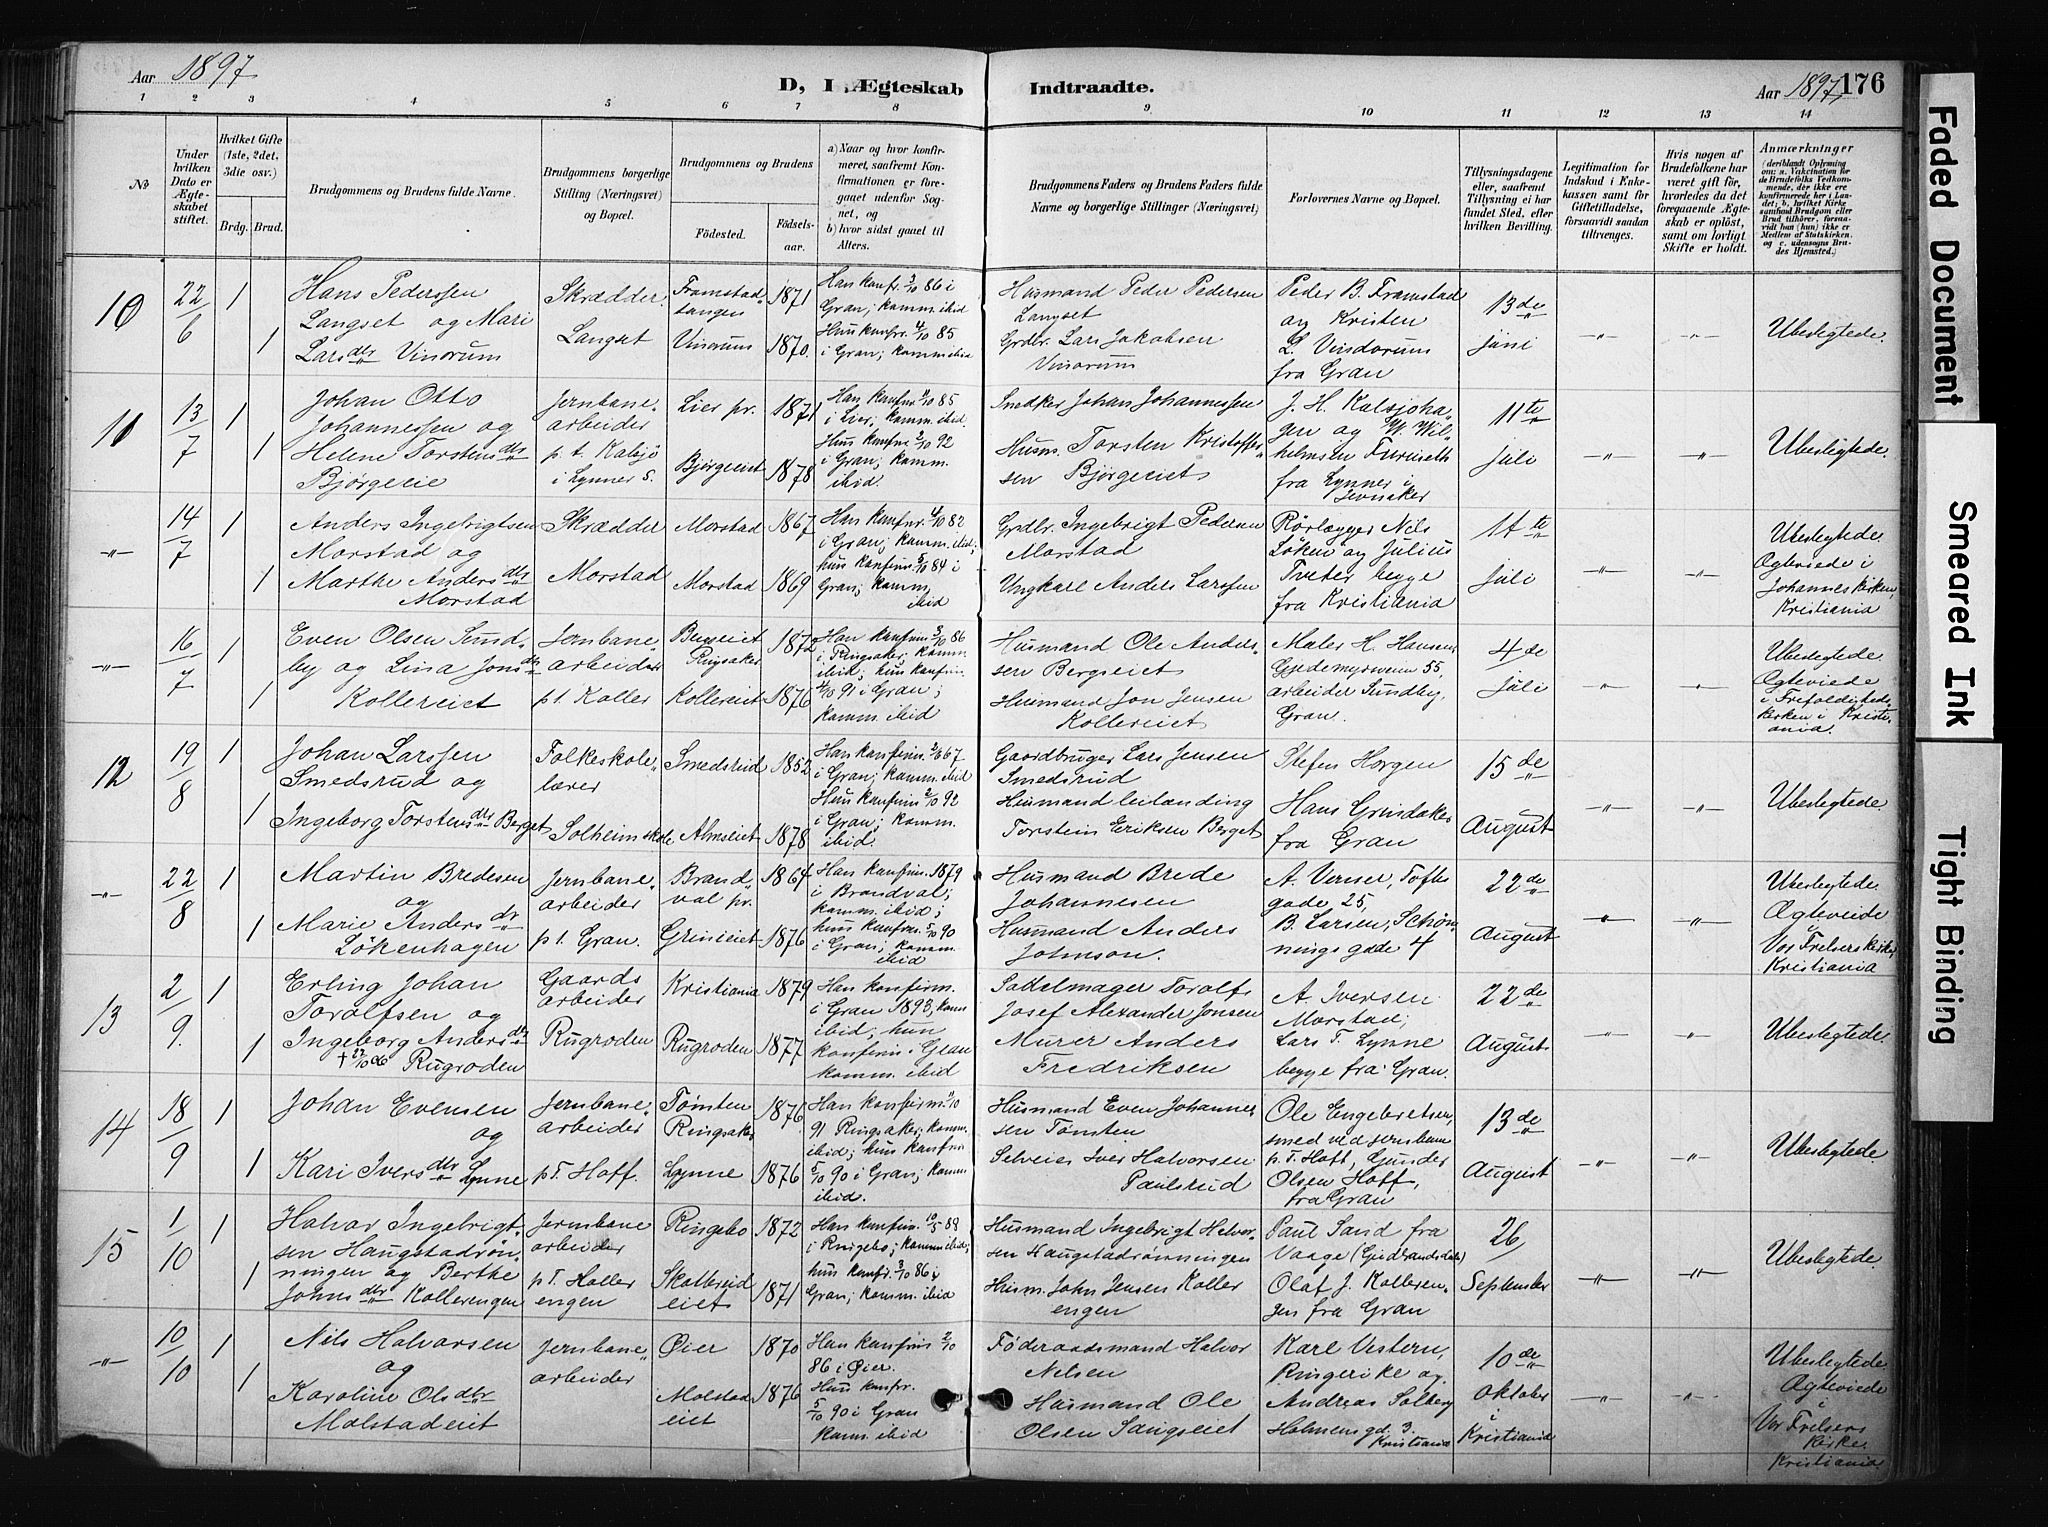 Aar 1897
D, I Ægteskab Indtraadte.
Aar 1897, 176
1 2 3 4 5 6 7 8 9 10 11 12 13 14
№
Under hvilken Dato er Ægteskabet stiftet.
Hvilket Gifte (1ste, 2det, 3die osv.)
Brdg. Brud.
Brudgommens og Brudens fulde Navne.
Brudgommens borgerlige Stilling (Næringsvei) og Bopæl.
Brudgommens og Brudens
Fødested.
Fødselsaar.
a) Naar og hvor konfirmeret, saafremt Konfirmationen er foregaaet udenfor Sognet, og
b) hvor sidst gaaet til Alters.
Brudgommens Faders og Brudens Faders fulde Navne og borgerlige Stillinger (Næringsvei)
Forlovernes Navne og Bopæl.
Tillysningsdagene eller, saafremt Tillysning ei har fundet Sted, efter hvilken Bevilling.
Legitimation for Indskud i Enkekassen samt for Giftetilladelse, forsaavidt saadan tiltrænges.
Hvis nogen af Brudefolkene har været gift før, hvorledes da det foregaaende Ægteskab er opløst, samt om lovligt Skifte er holdt.
Anmærkninger
(deriblandt Oplysning om: a. Vakcination for de Brudefolks Vedkommende, der ikke ere konfirmerede her i Landet; b. hvilket Kirkesamfund Brudgom eller Brud tilhører, forsaavidt han (hun) ikke er Medlem af Statskirken, og c. udensogns Brudes Hjemsted.)
10
22/6
1
1
Hans Pederssen
Langset og Mari
Larsdtr Vinorum
Skrædder
Langset
Framstad-
tangen
Vinorum
1871
1870.
Han konf. 3/10 86 i
Gran; komm. ibid
Hun konfr. 4/10 85
i Gran; komm. ibid
Husmand Peder Pedersen
Langset
Grdbr. Lars Jakobsen
Vinorum
Peder B. Framstad
og Kristen
L. Vindorum
fra Gran
13de
juni
Ubeslegtede.
11
13/7
1
1
Johan Otto
Johannessen og
Helene Torstensdtr
Bjørgeeie
Jernbane-
arbeider
p. t. Kalsjø
i Lynner s.
Lier pr.
Bjørgeeiet
1871
1878
Han konfr. 4/10 85
i Lier; komm. ibid.
Hun konfr. 2/10 92
i Gran; komm.
ibid.
Snedker Johan Johannessen
Husm. Torsten Kristoffer-
sen Bjørgeeiet
J. H. Kalsjøha-
gen og W. Wil-
helmsen Furuseth
fra Lynner i
Jevnaker
11te
juli
Ubeslegtede.
14/7
1
1
Anders Ingebrigtsen
Morstad og
Marthe Andersdtr
Morstad
Skrædder
Morstad
Morstad
Morstad
1867
1869
Han konfr. 4/10 82
i Gran; komm. ibid;
hun konfirm. 5/10 84 i
Gran; komm.
ibid
Grdbr. Ingebrigt Pedersen
Morstad
Ungkarl Anders Larssen
Rørlægger Nils
Løken og Julius
Tveter begge
fra Kristiania
11te
juli
Ubeslegtede.
Ægteviede i
Johanneskirken,
Kristiania
16/7
1
1
Even Olsen Sund-
by og Lina Jonsdtr
Kollereiet
Jernbane-
arbeider
pt. Koller
Bergeiet
Ringsaker
Kollereiet
1872
1876
Han konfirm. 3/10 86
i Ringsaker; komm.
ibid; hun konfir.
4/10 91 i Gran;
komm. ibid
Husmand Ole Anders-
sen Bergseiet
Husmand Jon Jensen
Kollereiet
Maler H. Hansen
Gjedemyrsveien 55,
arbeider Sundby,
Gran.
4de
juli
Ubeslegtede.
Ægteviede
i Trefoldigheds
kirken i Kristi-
ania.
12
19/8
1
1
Johan Larssen
Smedsrud og
Ingeborg Torstensdtr Berget
Folkeskole-
lærer
Solheim skole
Smedsrud
Almseiet
1852
1878
Han konfirm. 2/6 67
i Gran; komm. ibid
Hun konfirm 2/10 92
i Gran; komm.
ibid.
Gaardbruger Lars Jensen
Smedsrud
Torstein Eriksen Berget
Stefen Horgen
Hans Grindaker
fra Gran
15de
August
Ubeslegtede
22/8
1
1
Martin Bredesen
og
Marie Andersdr
Løkenhagen
Jernbane-
arbeider
pt. Gran.
Brand-
val pr.
Grinieiet
1864
1876
Han konfirm. 1879
i Brandval;
komm. ibid;
hun konfirm. 5/10 90
i Gran; komm.
ibid
Husmand Brede
Johannesen
Husmand Anders
Johnson.
A. Verner, Tofts
gade 25,
B. Larsen, Schøn-
nings gade 4
22de
August
Ubeslegtede.
Ægteviede
Vor Frelsers kirke,
Kristiania
13
2/9.
1
1
Erling Johan
Torolfsen og
Ingeborg Andersdtr
Rugroden
Gaards
arbeider
Rugroden
Kristiania
Rugroden
1879
1877
Han konfirm.
i Gran 1893, komm
ibid; hun
konfirm i Gran
komm. ibid
Sadelmager Torolf
Josef Alexander Jonsen
Murer Anders
Fredriksen
A. Iversen
Morstad;
Lars T. Lynne
begge fra Gran.
22de
August
Ubeslegtede.
14
18/9
1
1
Johan Evensen
og
Kari Iversdtr Lynne
Jernbane-
arbeider
p.T. Hoff.
Tømten
Ringsaker
Lynne
1876
1876
Han konfirm. 4/10
91 Ringsaker; komm.
ibid; hun konfirm
5/10 90 i Gran; komm
ibid.
Husmand Even Johannes-
sen Tømten
Selveier Iver Halvorsen
Paulsrud
Ole Engebretsen,
smed ved jernbanen
p.T. Hoff, Gunder
Olsen Hoff,
fra Gran
13de
August
Ubeslegtede.
15
1/10
1
1
Halvor Ingebrigt-
sen Haugstadrøn-
ningen og Berthe
Johnsdtr Kollerengen
Jernbane
arbeider
p.T. Koller
engen
Ringebo
eiet
1872
1871
Han konfirm. 10/5 89
i Ringebo; komm ibid;
hun konfr. 3/10 86 i
Gran; komm. ibid
Husmand Ingebrigt Halvor-
sen Haugstadrønningen
Husm. John Jensen Koller
engen
Paul Sand fra
Vaage (Gudbrandsdalen)
Olaf J. Kolleren-
gen fra Gran
26
September
Ubeslegtede.
10/10
1
1
Nils Halvorsen
og
Karoline Olsdtr
Molstadeiet
Jernbane-
arbeider
Øier
Molstad
eiet
1870
1876
Han konfirm 2/10
86 i Øier.
Hun konfr.
5/10 90 i Gran
komm. ibid
Føderaadsmand Halvor
Nelsen
Husmand Ole
Olsen Sangseiet
Karl Vestern,
Ringerike og
Andreas Solberg
Holmensgd. 3.
Kristiania
10de
Oktober
i
Kristiania
Ubeslegtede
Ægteviede
i
Vor Frelsers
Kirke.
Kristiania
Faded Document
Smeared Ink
Tight Binding